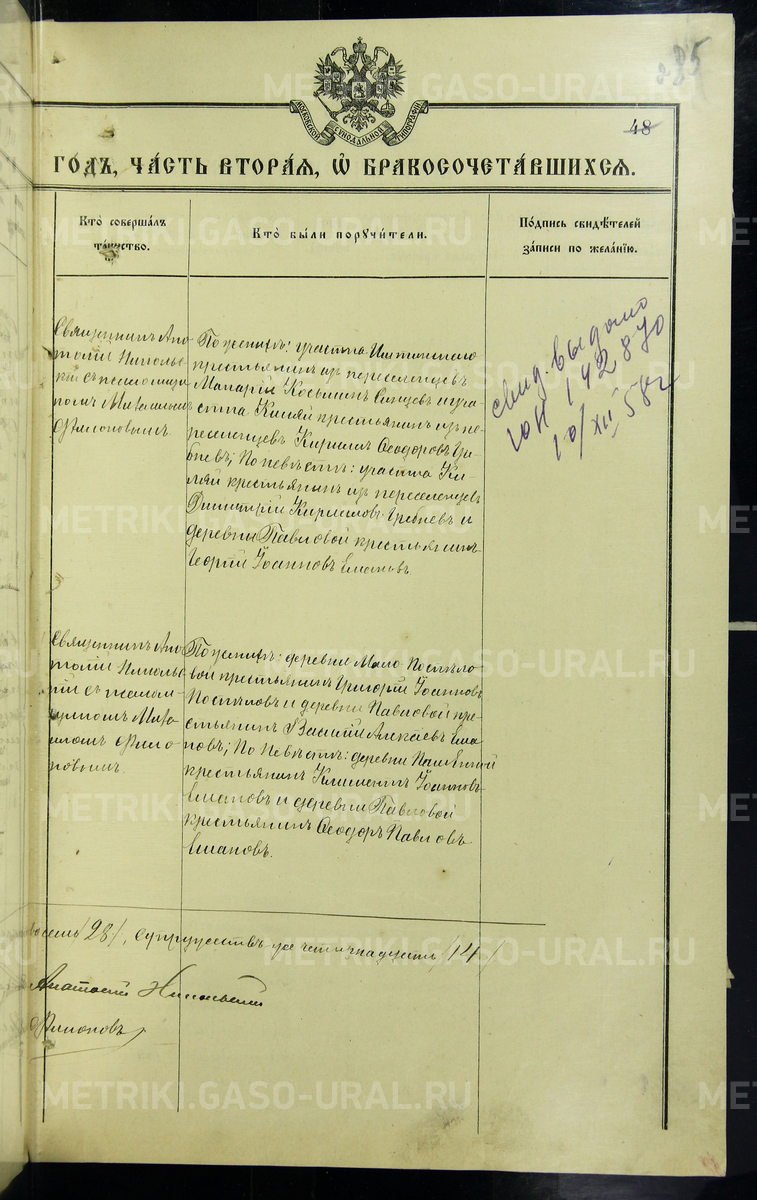 285
48
МОСКОВСКОЙ СѴНОДАЛЬНОЙ ТИПОГРАФІИ
ГОДЪ, ЧА́СТЬ ВТОРА́Я, Ѡ БРАКОСОЧЕТА́ВШИХСЯ.
Кто̀ соверша́лъ
та́инство.
Кто̀ бы́ли порꙋчи́тели.
По́дпись свидѣ́телей
за́писи по жела́нію.
Священникъ Ана
толій Николь
скій съ псаломщи
комъ Михаиломъ
Филоновымъ
По женихѣ: участка
крестьянинъ изъ переселенцевъ
Макарій Косминъ и уча
стка крестьянинъ изъ пе
реселенцевъ Кириллъ Ѳеодоровъ Гре
бневъ; По невѣстѣ: участка Ки
крестьянинъ изъ переселенцевъ
Димитрій Кирилловъ Гребневъ и
деревни Павловой крестьянинъ
Георгій Іоанновъ
свид. выдано
ЮН 142870
10/XII 58 г
Священникъ Ана
толій Николь
скій съ псалом
щикомъ Миха
иломъ Фило
новымъ.
По женихѣ: деревни Мало Поспѣло
вой крестьянинъ Григорій Іоанновъ
Поспѣловъ и деревни Павловой кре
стьянинъ Василій Алексѣевъ
новъ; По Невѣстѣ: деревни
крестьянинъ Климентъ Іоанновъ
и деревни Павловой
крестьянинъ Ѳеодоръ Павловъ
восемь /28/, супружествъ-же четырнадцать /14/
Анатолій Никольскій
Филоновъ
METRIKI.GASO-URAL.RU